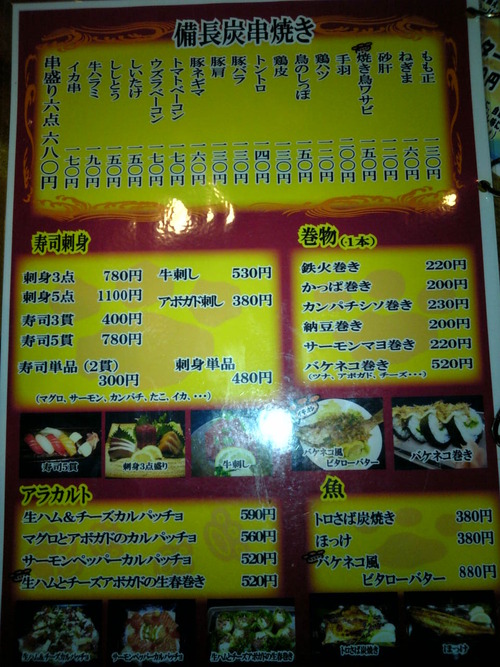 備長炭串焼き
もも正 一三〇円
ねぎま 一六〇円
砂肝 一二〇円
焼き鳥ワサビ 一五〇円
手羽 二〇〇円
鶏ハツ 一二〇円
鳥のしっぽ 一五〇円
鶏皮 一三〇円
トントロ 一四〇円
豚バラ 一三〇円
豚肩 一三〇円
豚ネギマ 一六〇円
トマトベーコン 一七〇円
ウズラベーコン 一七〇円
しいたけ 一五〇円
ししとう 一五〇円
牛ハラミ 一九〇円
イカ串 一七〇円
串盛り六点 六八〇円
寿司刺身
刺身3点 780円
刺身5点 1100円
寿司3貫 400円
寿司5貫 780円
寿司単品 (2貫)
300円
牛刺し 530円
アボガド刺し 380円
刺身単品
480円
(マグロ、サーモン、カンパチ、たこ、イカ、・・・)
巻物 (1本)
鉄火巻き 220円
かっぱ巻き 200円
カンパチシソ巻き 230円
納豆巻き 200円
サーモンマヨ巻き 220円
バケネコ巻き 520円
(ツナ、アボガド、チーズ・・・)
寿司5貫
刺身3点盛り
牛刺し
バケネコ風
ビタローバター
バケネコ巻き
アラカルト
生ハム&チーズカルパッチョ 590円
マグロとアボガドのカルパッチョ 560円
サーモンペッパーカルパッチョ 520円
生ハムとチーズアボガドの生春巻き 520円
魚
トロさば炭焼き 380円
ほっけ 380円
バケネコ風
ビタローバター 880円
生ハム&チーズカルパッチョ
サーモンペッパーカルパッチョ
生ハムとチーズアボガドの生春巻き
トロさば炭焼き
ほっけ